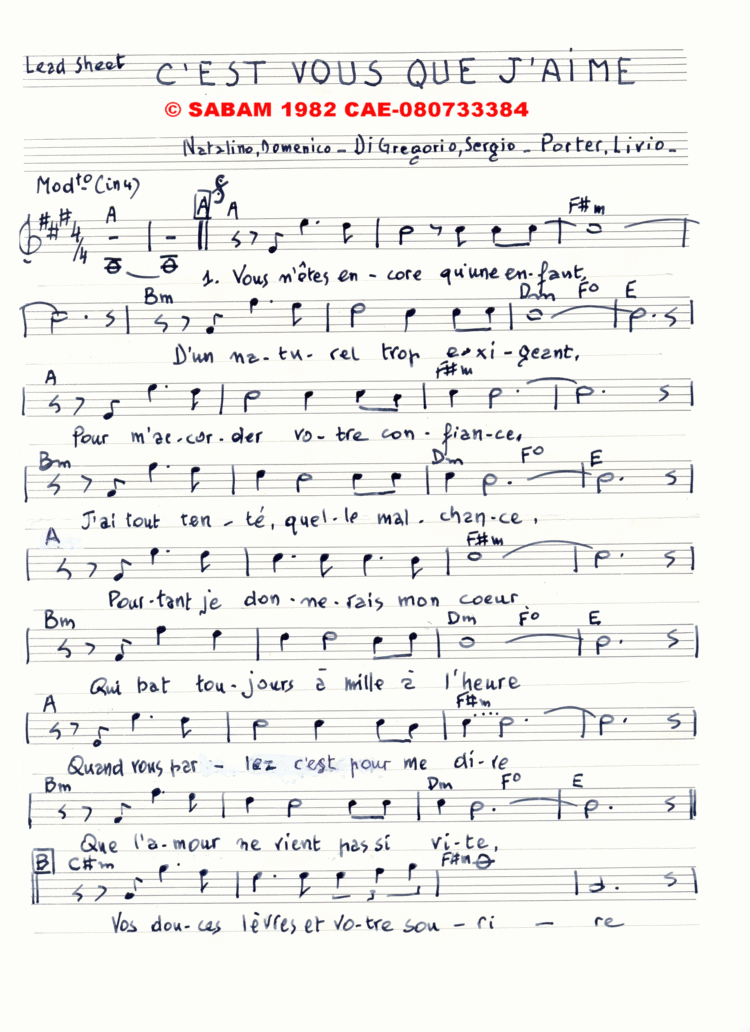 Lead Sheet C'EST VOUS QUE J'AIME
© SABAM 1982 CAE-080733384
Natalino, Domenico - Di Gregorio, Sergio - Porter, Livio -
Modto (in 4)
A A A F#m
4/4
1. Vous n'êtes en - core qu'une en - fant,
Bm Dm Fo E
D'un na - tu - rel trop e - xi - geant,
A F#m
Pour m'ac - cor - der vo - tre con - fian - ce,
Bm Dm Fo E
J'ai tout ten - té, quel - le mal - chan - ce,
A F#m
Pour - tant je don - ne - rais mon coeur
Bm Dm Fo E
Qui bat tou - jours à mille à l'heure
A F#m
Quand vous par - lez c'est pour me di - re
Bm Dm Fo E
Que l'a - mour ne vient pas si vi - te,
B C#m F#m
Vos dou - ces lèvres et vo - tre sou - ri - re